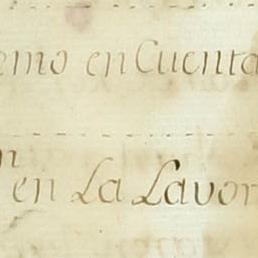 emo en Cuenta
n en La Lavor